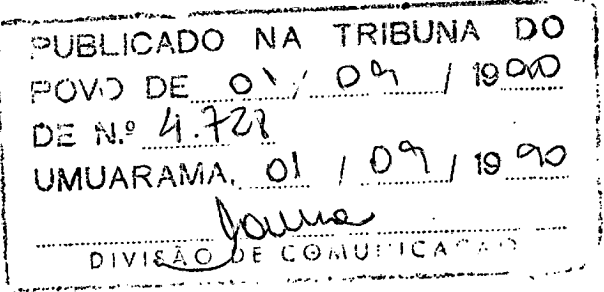 PUBLICADO NA TRIBUNA DO
POVO DE 01 / 09 / 1990
DE N.º 4.728
UMUARAMA, 01 / 09 / 1990
DIVISÃO DE COMUNICAÇÃO